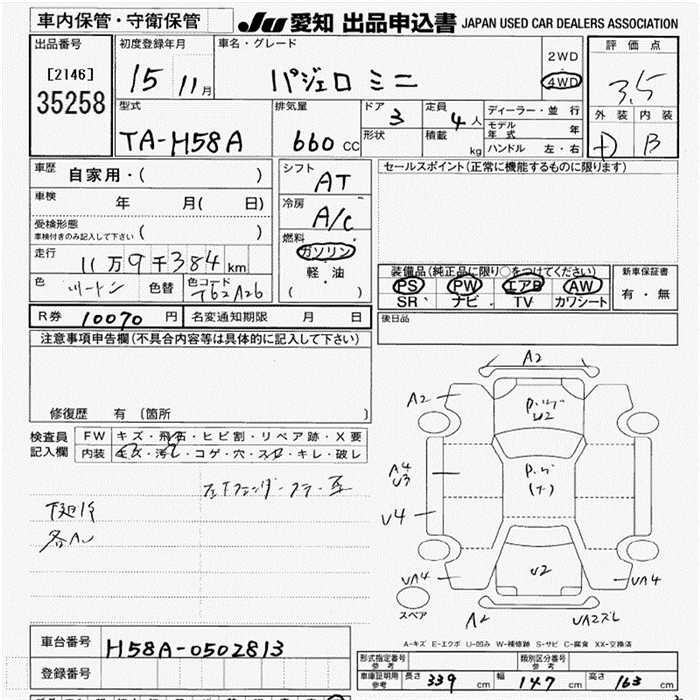 車内保管・守衛保管
JU 愛知 出品申込書 JAPAN USED CAR DEALERS ASSOCIATION
出品番号
[2146]
35258
初度登録年月
15 11月
車名・グレード
パジェロ ミニ
2WD
4WD
評価点
3.5
外装 内装
D B
型式
TA-H58A
排気量
660 CC
ドア 3
形状
定員 4 人
積載 kg
ディーラー・並行
モデル年式 年
ハンドル 左・右
車歴 自家用・( )
車検 年 月( 日)
受検形態
車検付きのみ記入して下さい ( )
走行
11万9千384km
色 ツートン 色替 色コード T62A26
シフト AT
冷房 A/C
燃料
ガソリン
軽・油
( )
セールスポイント(正常に機能するものに限ります)
装備品(純正品に限り○をつけてください)
PS PW エアB AW
SR ナビ TV カワシート
新車保証書
有・無
R券 10070 円 名変通知期限 月 日
後日品
注意事項申告欄(不具合内容等は具体的に記入して下さい)
修復歴 有(箇所 )
検査員記入欄
FW キズ・飛石・ヒビ割・リペア跡・X要
内装 キズ・汚レ・コゲ・穴・スレ・キレ・破レ
下廻サ
各AU
A2
A2
P.ツブ
U2
A4
U3
U4
UA4
U2
UA4
スペア
A2
UA2ズレ
A-キズ E-エクボ U-凹み W-補修跡 S-サビ C-腐食 XX-交換済
車台番号 H58A-0502813
登録番号
形式指定番号
参考
類別区分番号
参考
車庫証明用
参考
長さ 339 cm 幅 147 cm 高さ 163 cm